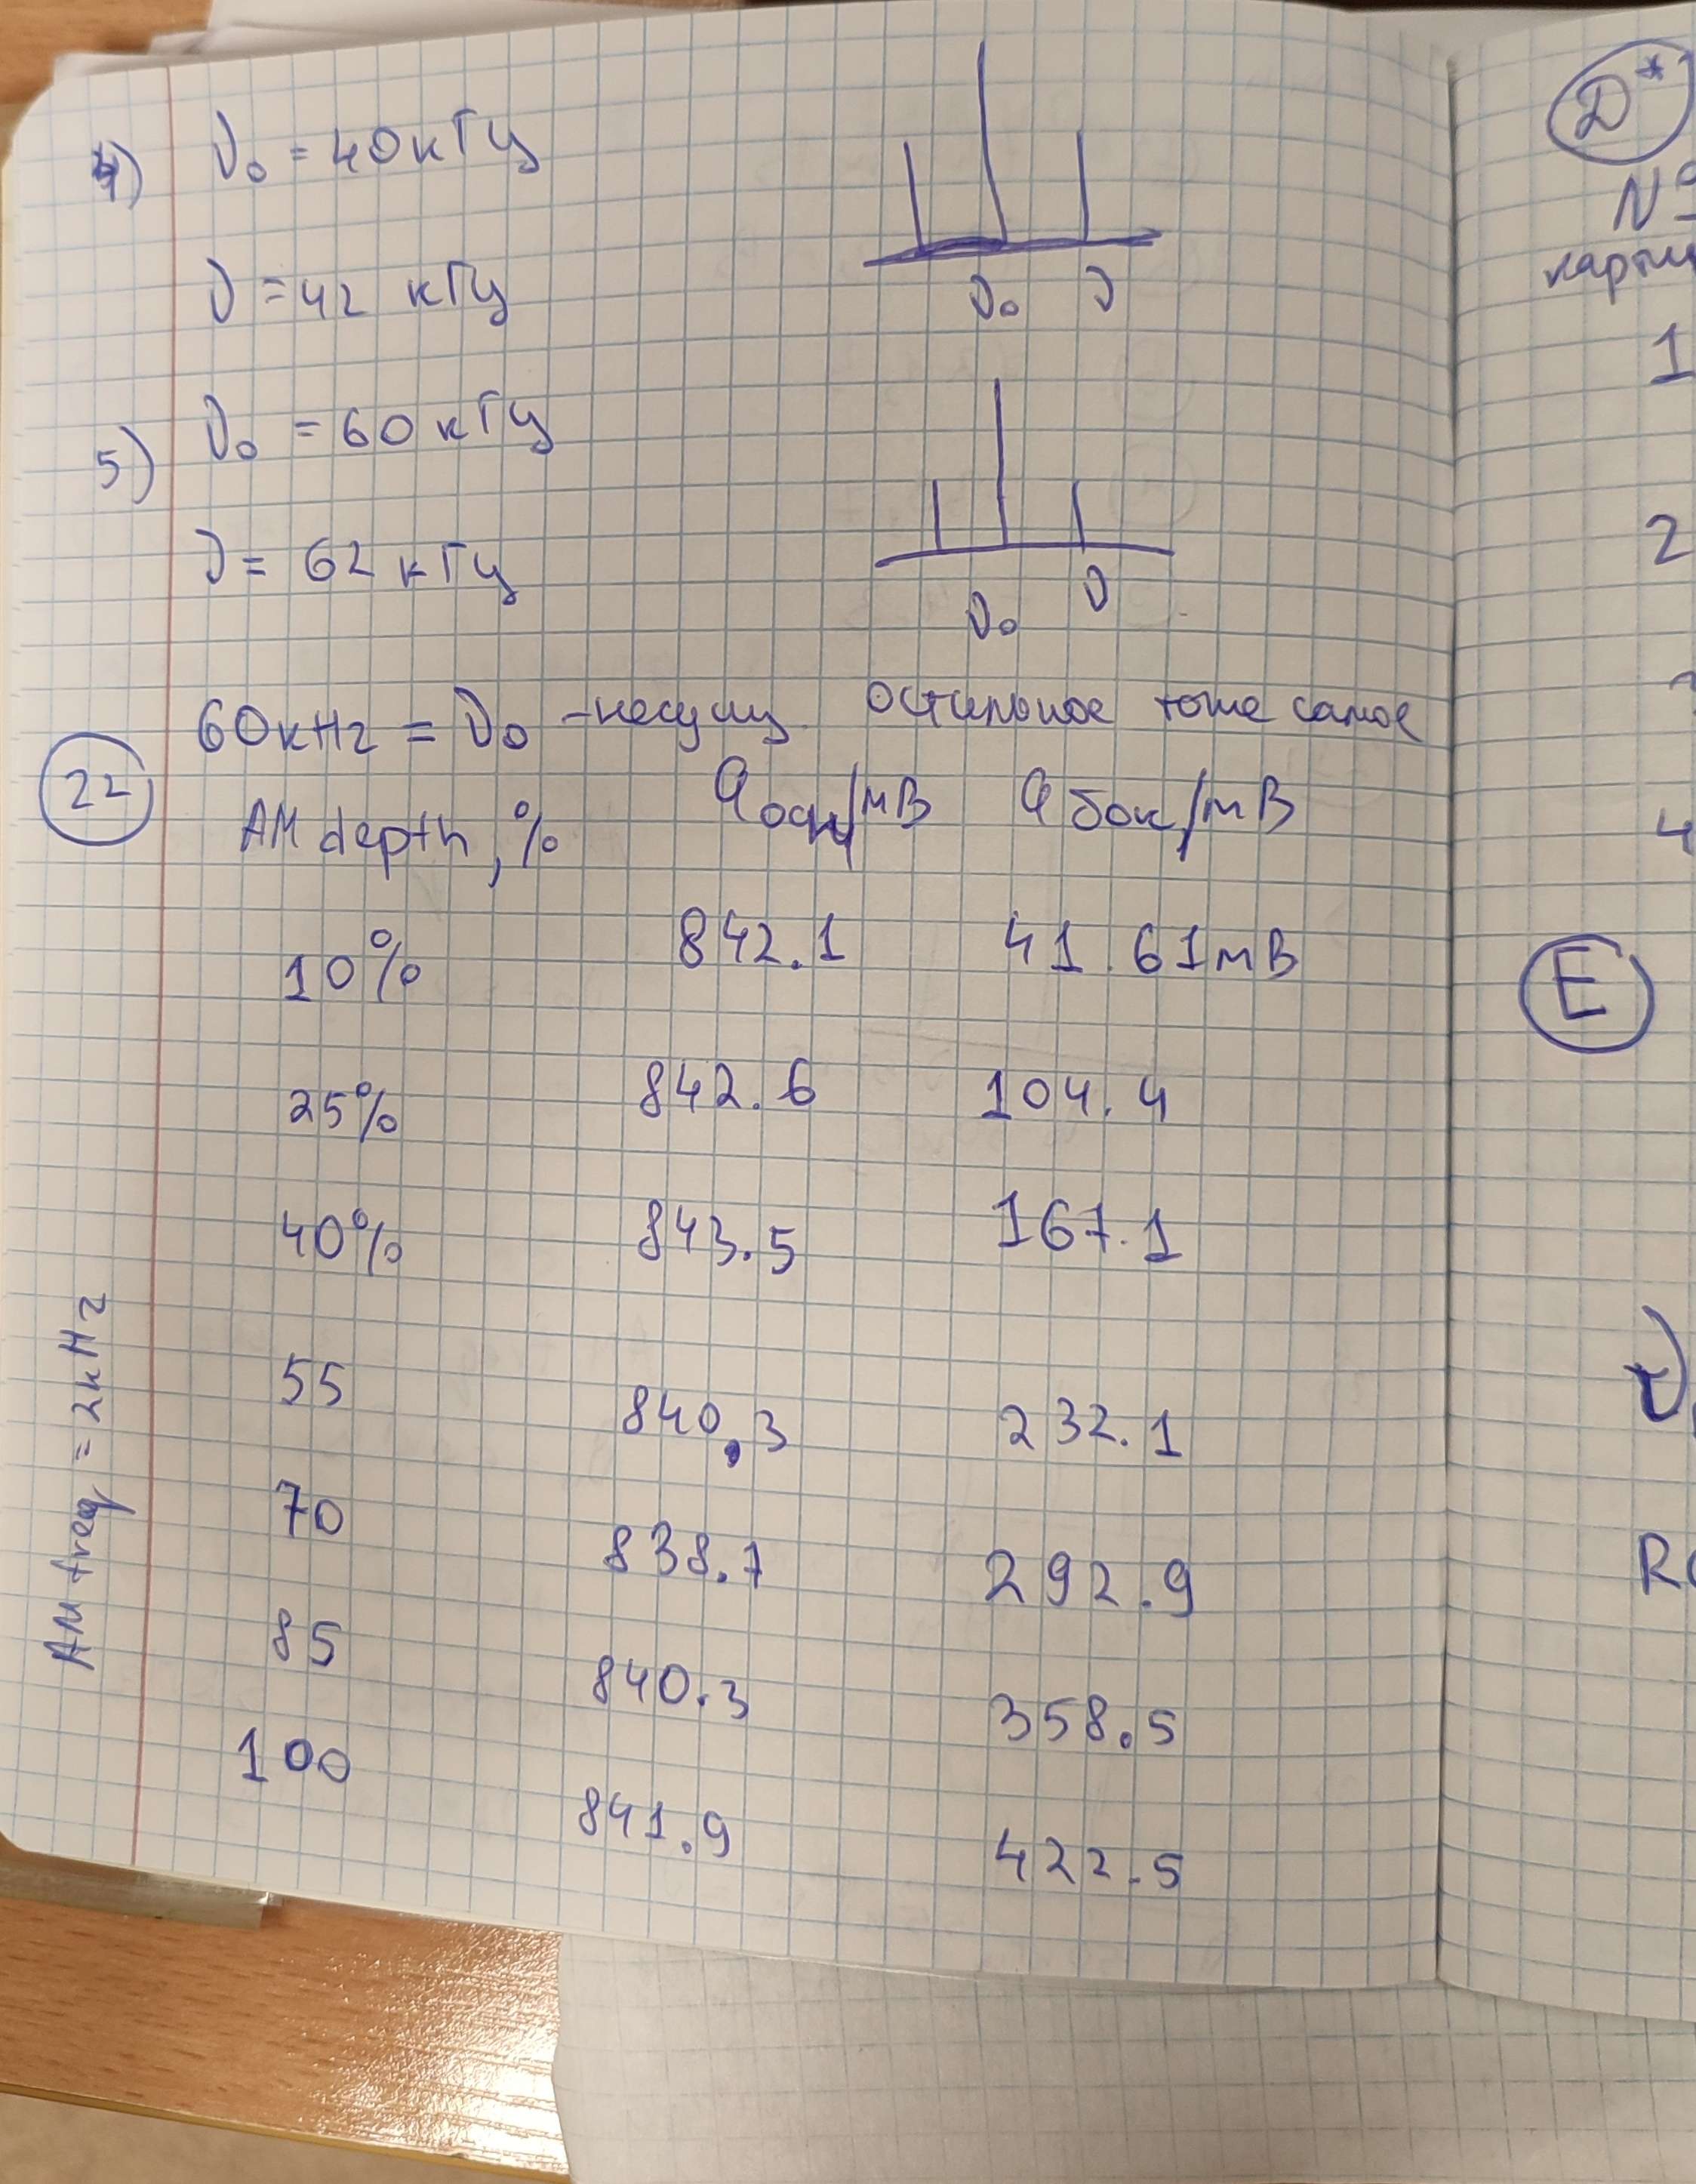 4) ν₀ = 40 кГц
ν = 42 кГц
ν₀ ν
5) ν₀ = 60 кГц
ν = 62 кГц
ν₀ ν
22 60кHz = ν₀ - несущ. остальное тоже самое
AM depth, % aосн/мВ aбок/мВ
10% 842.1 41.61мВ
25% 842.6 104.4
40% 843.5 167.1
55 840,3 232.1
70 838.7 292.9
85 840.3 358.5
100 841.9 422.5
AM freq = 2кHz
D*
№
1
2
4
E